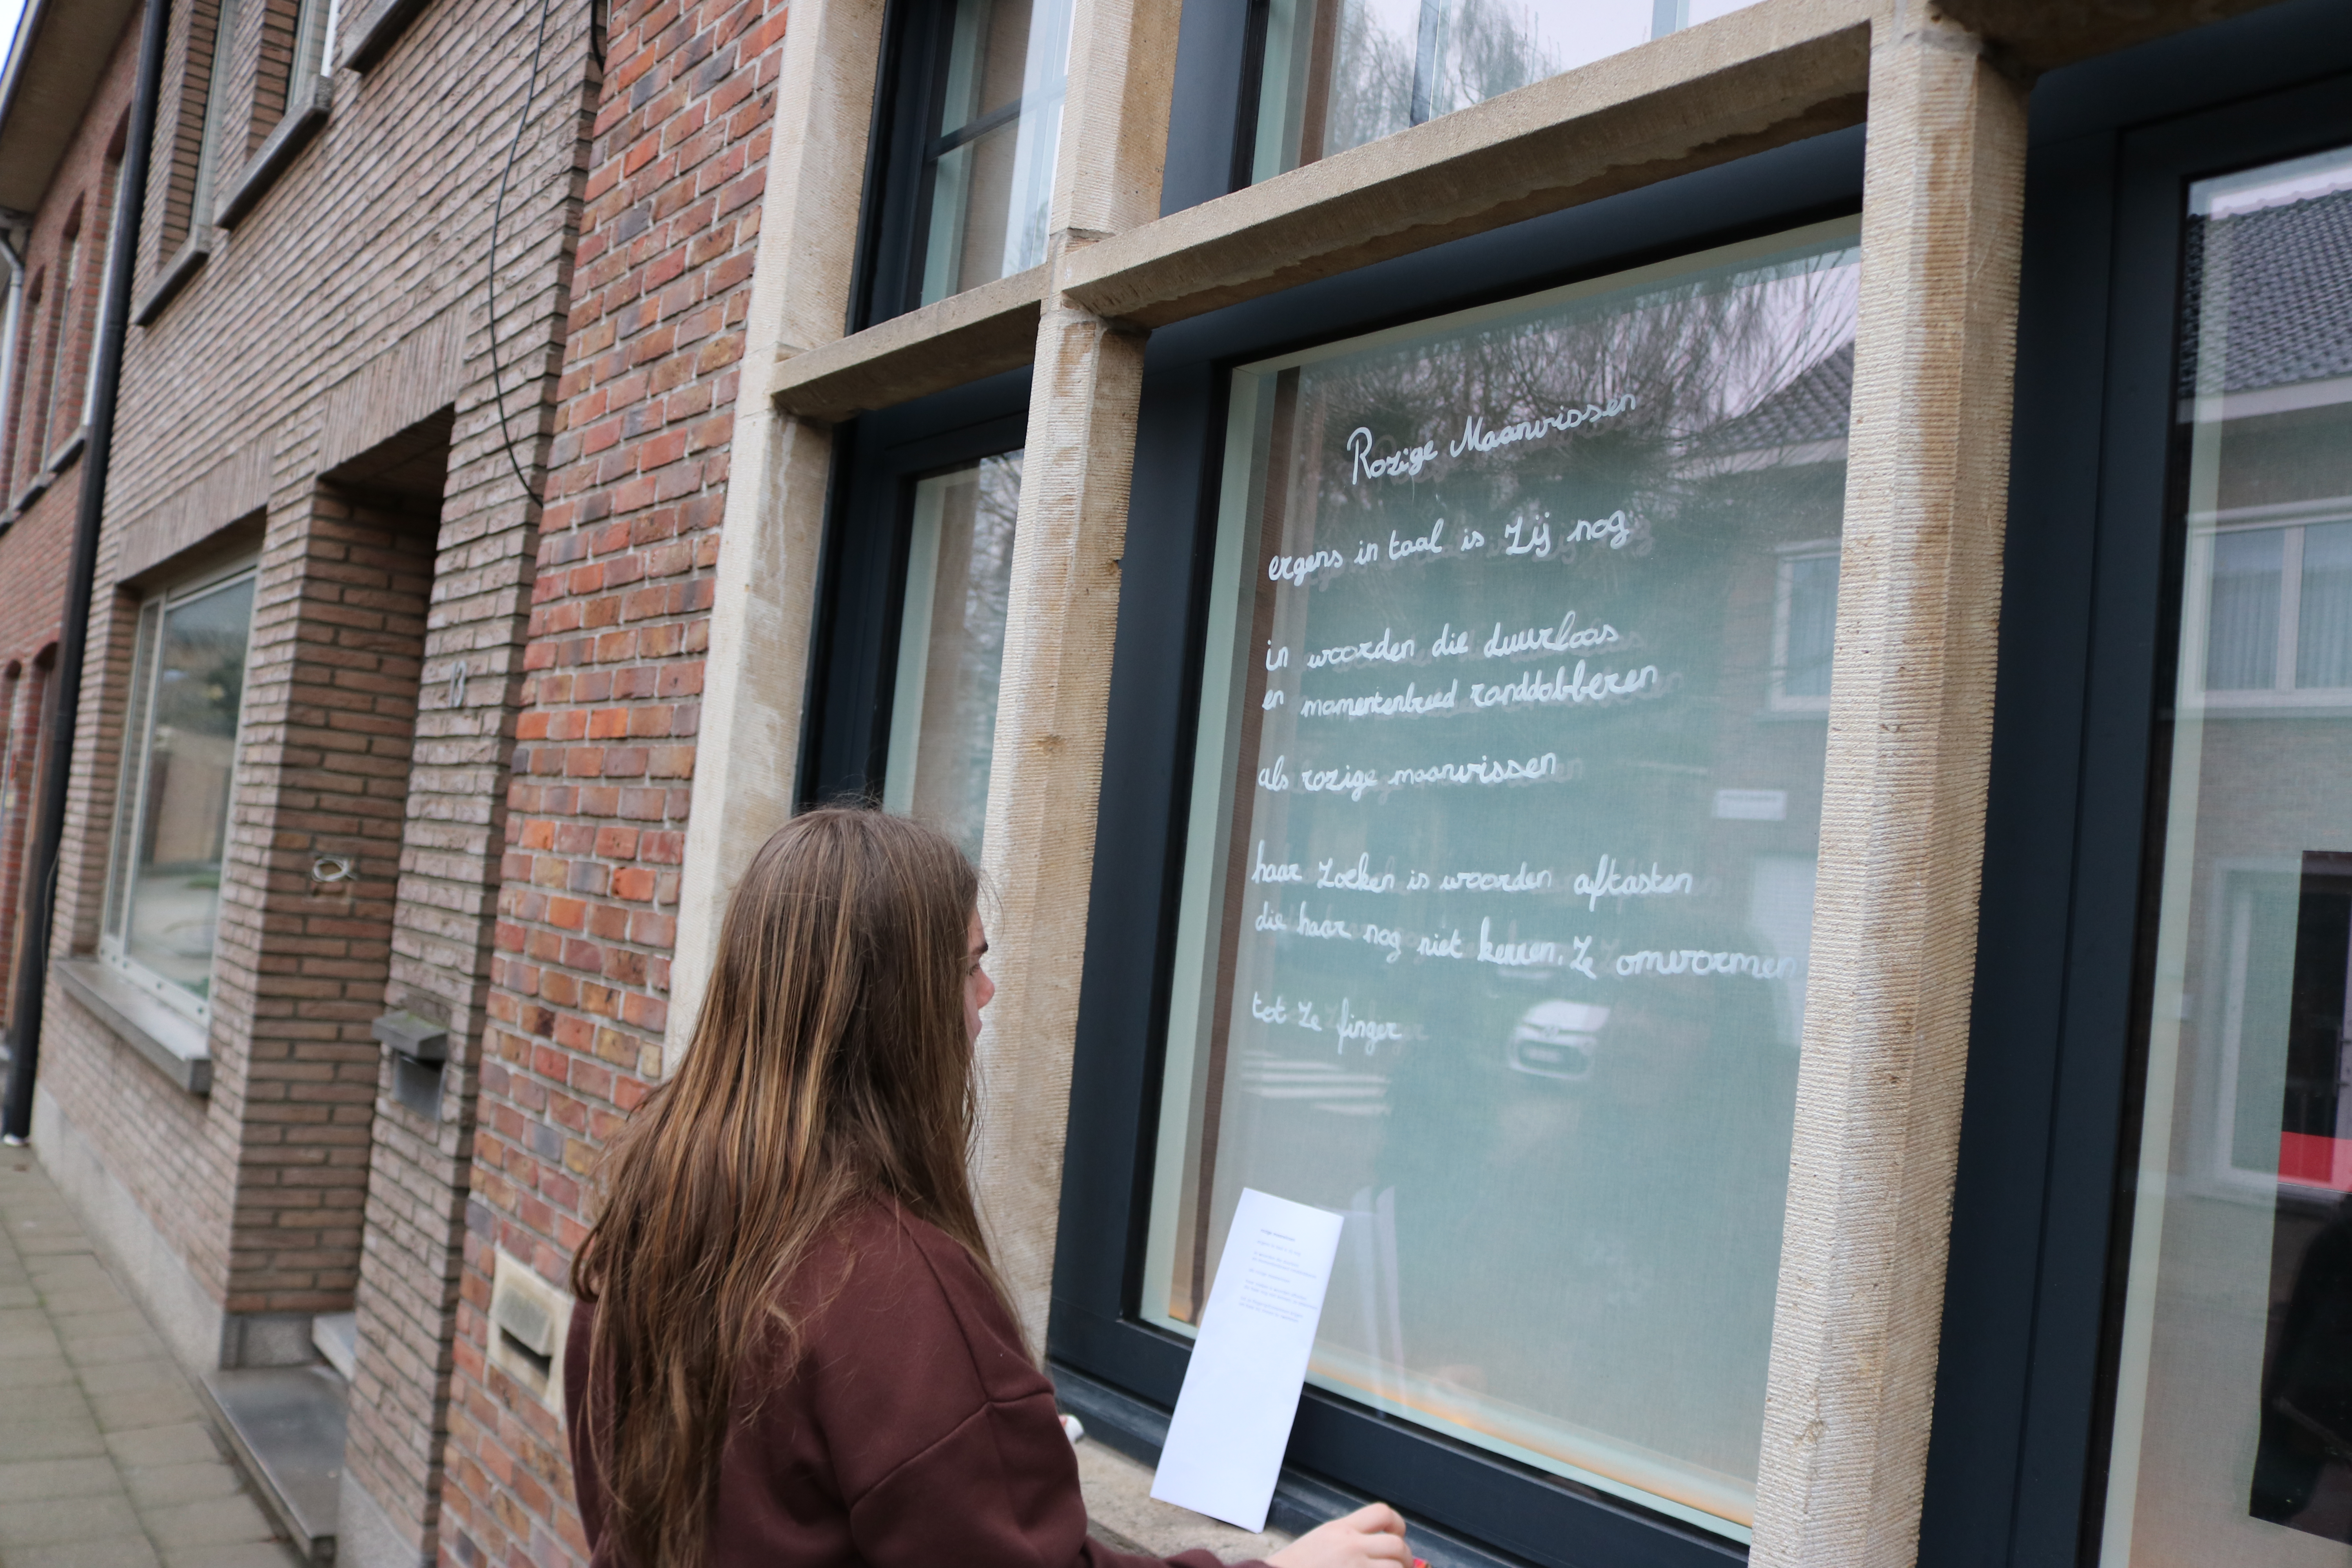 Rozige Maanvissen
ergens in taal is zij nog
in woorden die duurloos
en momentenbreed ronddobberen
als rozige maanvissen
haar zoeken is woorden aftasten
die haar nog niet kennen. Ze omvormen
tot ze finger
13